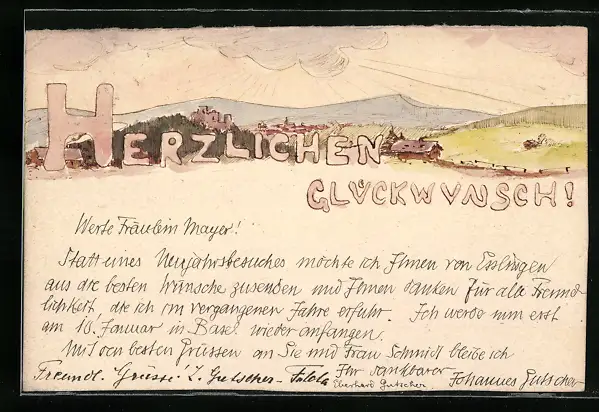 HERZLICHEN
GLÜCKWUNSCH!
Werte Fräulein Mayer!
Statt eines Neujahrsbesuches möchte ich Ihnen von Esslingen
aus die besten Wünsche zusenden und Ihnen danken für alle Freund-
lichkeit, die ich im vergangenen Jahre erfuhr. Ich werde nun erst
am 10. Januar in Basel wieder anfangen.
Mit den besten Grüssen an Sie und Frau Schmidl bleibe ich
Ihr dankbarer
Freundl. Grüsse! Gutscher-
Eberhard Gutscher
Johannes Gutscher